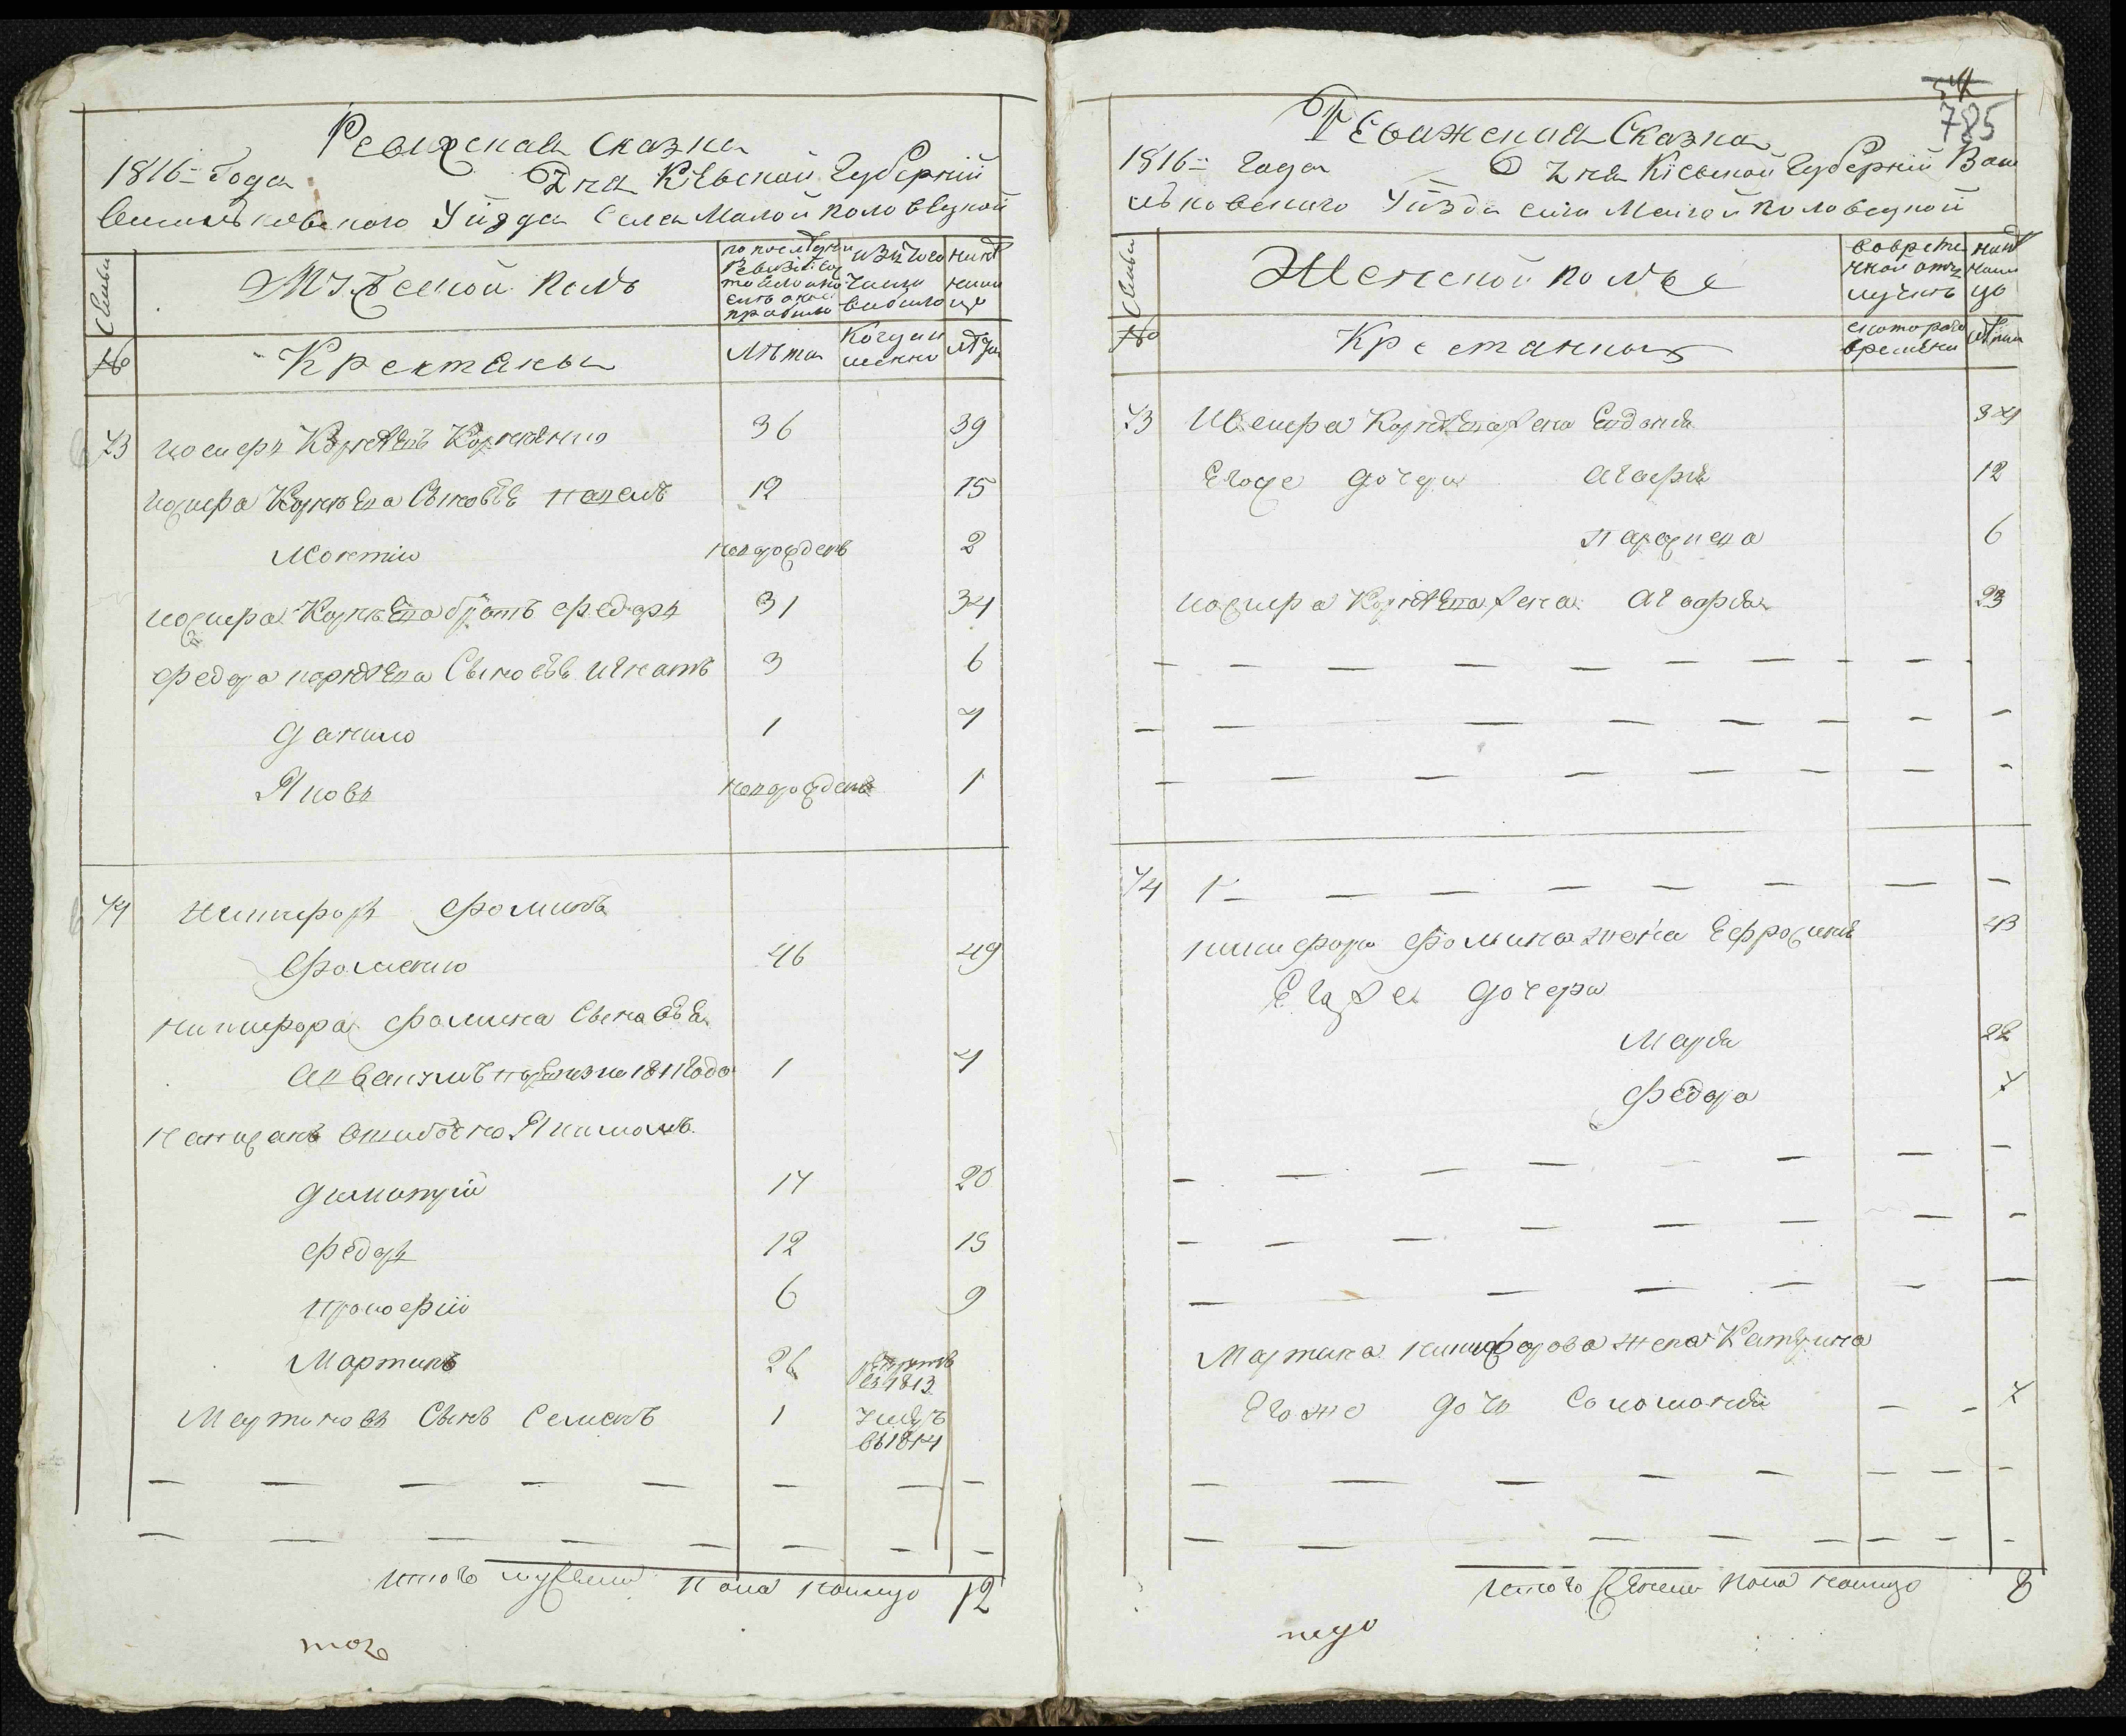 Ревижская Сказка
1816= Года Дня Кіевской Губерніи
Васильковского Уѣзда Села Малой половецкой
Семьи
Мужеской полъ
по последней Ревизіи состояло и после оной прибыло
изтого числа выбыло
нынѣ налицо
№
Крестяны
лѣта
Когда именно
лѣта
73 Иосифъ Корнѣевъ Корнѣенко 36 39
Иосифа Корнѣева Сыновѣе павелъ 12 15
Моктій новорожденъ 2
Иосифа Корнѣева братъ Федоръ 31 34
Федора корнѣева Сыновѣе Игнатъ 3 6
Данило 1 4
Яковъ новорожденъ 1
74 Никифоръ Фоминъ
Фоменко 46 49
Никифора Фомина Сыновѣе
по Ревизіи 1811 Года 1 4
написанъ ошибочно Якимомъ
Димитрій 17 20
Федоръ 12 15
прокофій 6 9
Мартинъ 26 въ 1813
Мартиновъ Сынъ Семенъ 1 умеръ въ 1814
— — — — — — — —
— — — — — — — —
Итого мужеска пола налицо 12
тог
785
Ревижская Сказка
1816= Года Дня Кіевской Губерніи Васи
льковского Уѣзда села Малой половецкой
Семьи
Женской полъ
вовременной отлучкѣ
нынѣ налицо
№
Крестянки
скоторого времѣни
лѣта
73 Иосифа Корнѣева жена Евдокия 34
Егоже дочери Агафия 12
параскева 6
Иосифа Корнѣева жена Агафия 23
— — — — — — — — —
— — — — — — — —
— — — — — — — —
74 1 — — — — — — — —
Никифора Фомина жена Ефросиния 43
Егоже дочери
Мария 22
Федора 7
— — — — — —
— — — — — —
— — — — — —
Мартина никифорова жена Катерина
Егоже дочь Соломония — — 7
— — — — — — — —
— — — — — — — —
Итого женска пола налицо 8